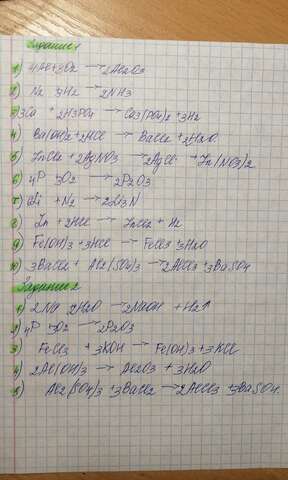 Задание 1
1) 4Al+3O2 → 2Al2O3
2) N2 3H2 → 2NH3
3) 3Ca + 2H3PO4 → Ca3(PO4)2 + 3H2
4) Ba(OH)2 + 2HCl → BaCl2 + 2H2O
5) ZnCl2 + 2AgNO3 → 2AgCl Zn(NO3)2
6) 4P 3O2 → 2P2O3
7) 6Li + N2 → 2Li3N
8) Zn + 2HCl → ZnCl2 + H2
9) Fe(OH)3 + 3HCl → FeCl3 + 3H2O
10) 3BaCl2 + Al2(SO4)3 → 2AlCl3 + 3BaSO4
Задание 2
1) 2Na 2H2O → 2NaOH + H2↑
2) 4P 3O2 → 2P2O3
3) FeCl3 + 3KOH → Fe(OH)3 + 3KCl
4) 2Al(OH)3 → Al2O3 + 3H2O
5) Al2(SO4)3 + 3BaCl2 → 2AlCl3 + 3BaSO4